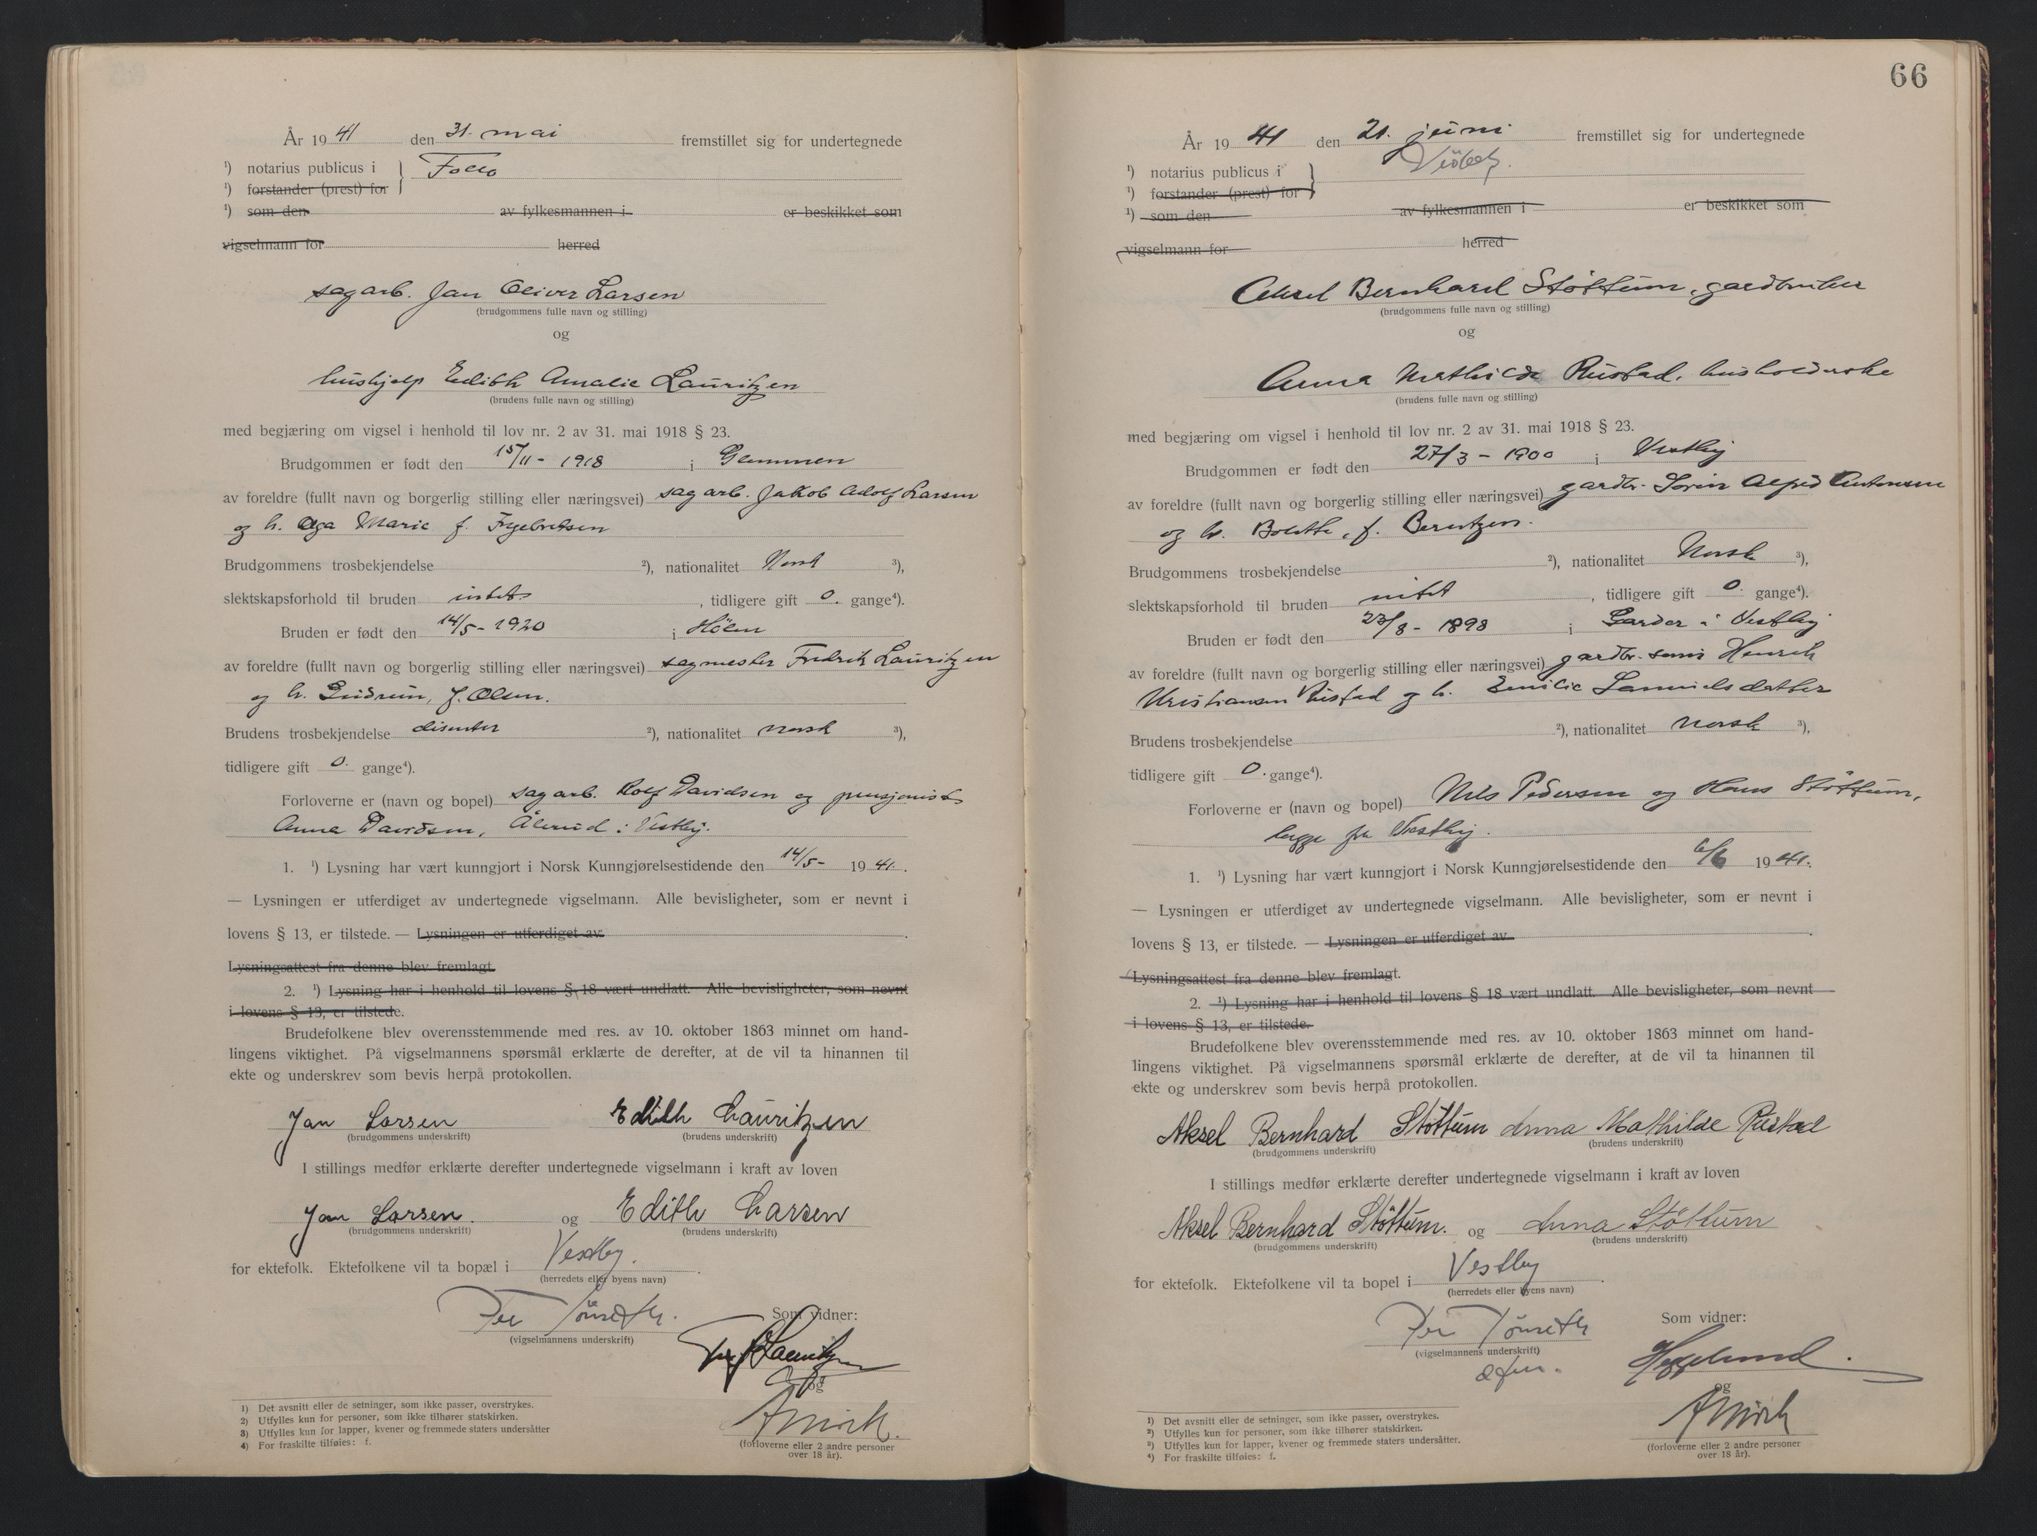 År 1941 den 31. mai fremstillet sig for undertegnede
¹) notarius publicus i } Follo
¹) forstander (prest) for
¹) som den av fylkesmannen i er beskikket som
vigselmann for herred
sagarb. Jan Oliver Larsen
(brudgommens fulle navn og stilling)
og
hushjelp Edith Amalie Lauritzen
(brudens fulle navn og stilling)
med begjæring om vigsel i henhold til lov nr. 2 av 31. mai 1918 § 23.
Brudgommen er født den 15/11 - 1918 i Glemmen
av foreldre (fullt navn og borgerlig stilling eller næringsvei) sagarb. Jakob Adolf Larsen
og h. Aga Marie f. Ingebretsen
Brudgommens trosbekjendelse ²), nationalitet Norsk ³),
slektskapsforhold til bruden intet , tidligere gift 0. gange⁴).
Bruden er født den 14/5 - 1920 i Hølen
av foreldre (fullt navn og borgerlig stilling eller næringsvei) sagmester Fredrik Lauritzen
og h. Gudrun, f. Olsen.
Brudens trosbekjendelse disenter ²), nationalitet norsk ³),
tidligere gift 0. gange⁴).
Forloverne er (navn og bopel) sagarb. Rolf Davidsen og pensjonist
Anna Davidsen, Ålerud i Vestby.
1. ¹) Lysning har vært kunngjort i Norsk Kunngjørelsestidende den 14/5 - 1941.
— Lysningen er utferdiget av undertegnede vigselmann. Alle bevisligheter, som er nevnt i
lovens § 13, er tilstede. — Lysningen er utferdiget av
Lysningsattest fra denne blev fremlagt.
2. ¹) Lysning har i henhold til lovens § 18 vært undlatt. Alle bevisligheter, som nevnt
i lovens § 13, er tilstede.
Brudefolkene blev overensstemmende med res. av 10. oktober 1863 minnet om hand-
lingens viktighet. På vigselmannens spørsmål erklærte de derefter, at de vil ta hinannen til
ekte og underskrev som bevis herpå protokollen.
Jan Larsen Edith Lauritzen
(brudgommens underskrift) (brudens underskrift)
I stillings medfør erklærte derefter undertegnede vigselmann i kraft av loven
Jan Larsen. og Edith Larsen
(brudgommens underskrift) (brudens underskrift)
for ektefolk. Ektefolkene vil ta bopæl i Vestby.
(herredets eller byens navn)
Per Tönseth. Som vidner:
(vigselmannens underskrift)
Lauritzen
og
(forloverne eller 2 andre personer
over 18 år).
1) Det avsnitt eller de setninger, som ikke passer, overstrykes.
2) Utfylles kun for personer, som ikke tilhører statskirken.
3) Utfylles kun for lapper, kvener og fremmede staters undersåtter
4) For fraskilte tilføies: f.
66
År 1941 den 21. juni fremstillet sig for undertegnede
¹) notarius publicus i } Vestby.
¹) forstander (prest) for
¹) som den av fylkesmannen i er beskikket som
vigselmann for herred
Aksel Bernhard Støttum, gardbruker
(brudgommens fulle navn og stilling)
og
Anna Mathilde Rustad, husholderske
(brudens fulle navn og stilling)
med begjæring om vigsel i henhold til lov nr. 2 av 31. mai 1918 § 23.
Brudgommen er født den 27/3 - 1900 i Vestby
av foreldre (fullt navn og borgerlig stilling eller næringsvei) gardbr. Søren Alfred Antonsen
og h. Bolette, f. Berntzen.
Brudgommens trosbekjendelse ²), nationalitet Norsk ³),
slektskapsforhold til bruden intet , tidligere gift 0. gange⁴).
Bruden er født den 23/8 - 1898 i Garder i Vestby
av foreldre (fullt navn og borgerlig stilling eller næringsvei) gardbr. sønn Henrik
Kristiansen Rustad og h. Emilie Samuelsdatter
Brudens trosbekjendelse ²), nationalitet norsk ³),
tidligere gift 0. gange⁴).
Forloverne er (navn og bopel) Nils Pedersen og Hans Støttum,
begge fra Vestby.
1. ¹) Lysning har vært kunngjort i Norsk Kunngjørelsestidende den 6/6 1941.
— Lysningen er utferdiget av undertegnede vigselmann. Alle bevisligheter, som er nevnt i
lovens § 13, er tilstede. — Lysningen er utferdiget av
Lysningsattest fra denne blev fremlagt.
2. ¹) Lysning har i henhold til lovens § 18 vært undlatt. Alle bevisligheter, som nevnt
i lovens § 13, er tilstede.
Brudefolkene blev overensstemmende med res. av 10. oktober 1863 minnet om hand-
lingens viktighet. På vigselmannens spørsmål erklærte de derefter, at de vil ta hinannen til
ekte og underskrev som bevis herpå protokollen.
Aksel Bernhard Støttum Anna Mathilde Rustad
(brudgommens underskrift) (brudens underskrift)
I stillings medfør erklærte derefter undertegnede vigselmann i kraft av loven
Aksel Bernhard Støttum. og Anna Støttum
(brudgommens underskrift) (brudens underskrift)
for ektefolk. Ektefolkene vil ta bopel i Vestby.
(herredets eller byens navn)
Per Tönseth Som vidner:
(vigselmannens underskrift)
og
(forloverne eller 2 andre personer
over 18 år).
¹) Det avsnitt eller de setninger, som ikke passer, overstrykes.
²) Utfylles kun for personer, som ikke tilhører statskirken.
³) Utfylles kun for lapper, kvener og fremmede staters undersåtter.
⁴) For fraskilte tilføies: f.